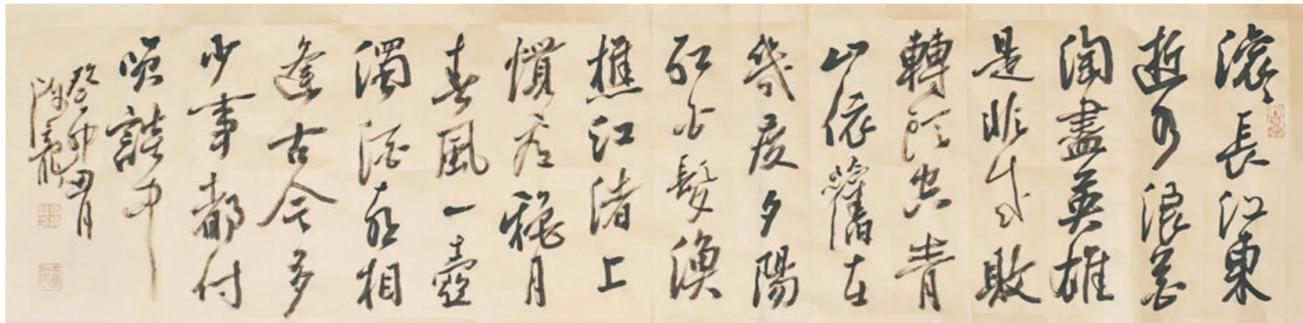 滾々長江東
逝水浪花
淘盡英雄
是非成敗
轉頭空青
山依舊在
幾度夕陽
紅白髮漁
樵江渚上
慣看穐月
春風一壺
濁酒喜相
逢古今多
少事都付
笑談中
癸卯月